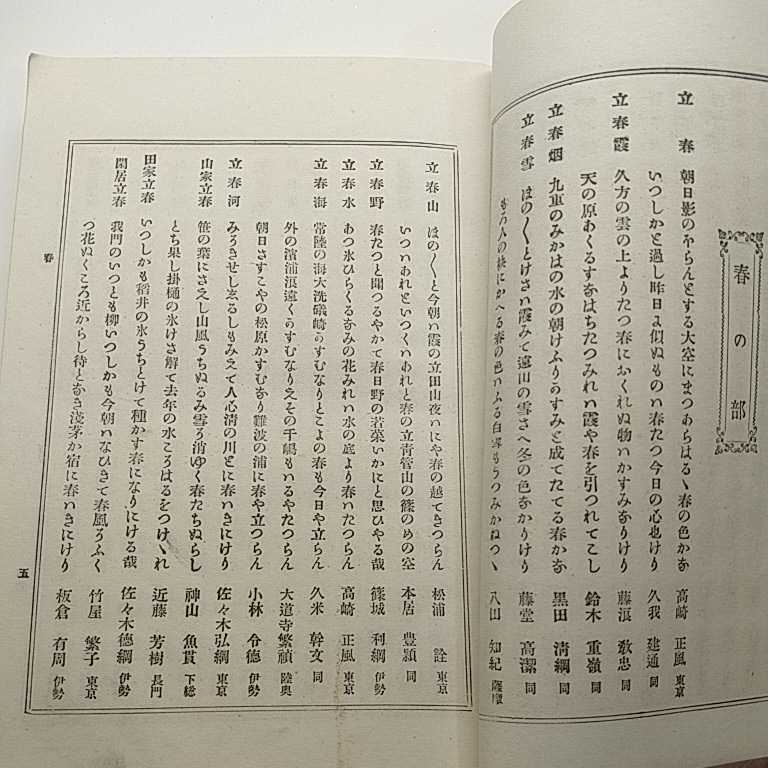 春の部
立春 朝日影のぼらんとする大空にまつあらはるゝ春の色かな 高崎 正風 東京
いつしかと過し昨日に似ぬものは春たつ今日の心也けり 久我 建通 同
立春霞 久方の雲の上よりたつ春におくれぬ物はかすみなりけり 藤浪 教忠 同
天の原あくるすなはちたつみれは霞や春を引つれてこし 鈴木 重嶺 同
立春烟 九重のみかはの水の朝けふりかすみと成てたてる春かな 黒田 清綱 同
立春雪 ほの〳〵とけさは霞みて遠山の雪さへ冬の色なかりけり 藤堂 高潔 同
もろ人の袂にかへる春の色にふる白雪もうつみかねつゝ 八田 知紀 薩摩
立春山 ほの〳〵と今朝は霞の立田山夜はにや春の越てきつらん 松浦 詮 東京
いつはあれといつくはあれと春の立青菅山の篠のめの空 本居 豊頴 同
立春野 春たつと聞つるやかて春日野の若菜いかにと思ひやる哉 篠城 利綱 伊勢
立春水 あつ氷ひらくるなみの花みれは水の底より春はたつらん 高崎 正風 東京
立春海 常陸の海大洗磯崎かすむなりとこよの春も今日や立らん 久米 幹文 同
外の濱浦浪遠くかすむなりえその千嶋もはるやたつらん 大道寺繁禎 陸奥
朝日さすこやの松原かすむなり難波の浦に春や立つらん 小林 令徳 伊勢
立春河 みそきせしゐるしもみえて人心清の川とに春はきにけり 佐々木弘綱 東京
山家立春 笹の葉にさえし山風うちぬるみ雪そ消ゆく春たちぬらし 神山 魚貫 下総
とち果し掛樋の氷けさ解て去年の水こそはるをつけゝれ 近藤 芳樹 長門
田家立春 いつしかも稻井の氷うちとけて種かす春になりにける哉 佐々木徳綱 伊勢
閑居立春 我門のいつとも柳いつしかも今朝はなひきて春風そふく 竹屋 繁子 東京
つ花ぬくころ近からし待となき淺茅か宿に春はきにけり 板倉 有周 伊勢
春
五